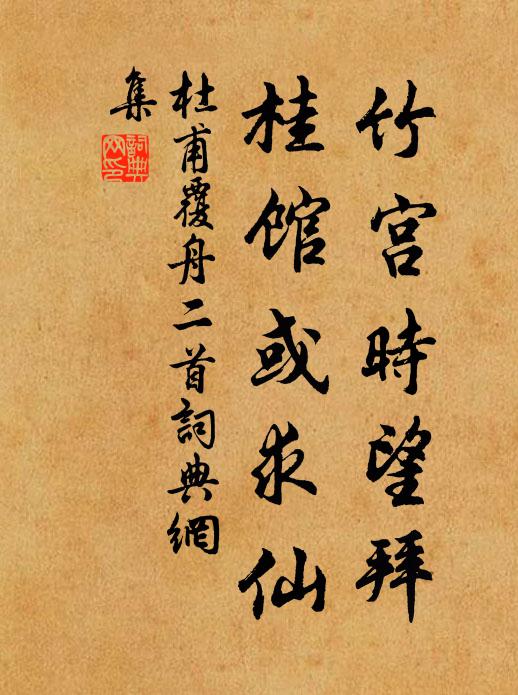 竹宫時望拜
桂館或求仙
杜甫覆舟二首詞典網
集
詞典
网印